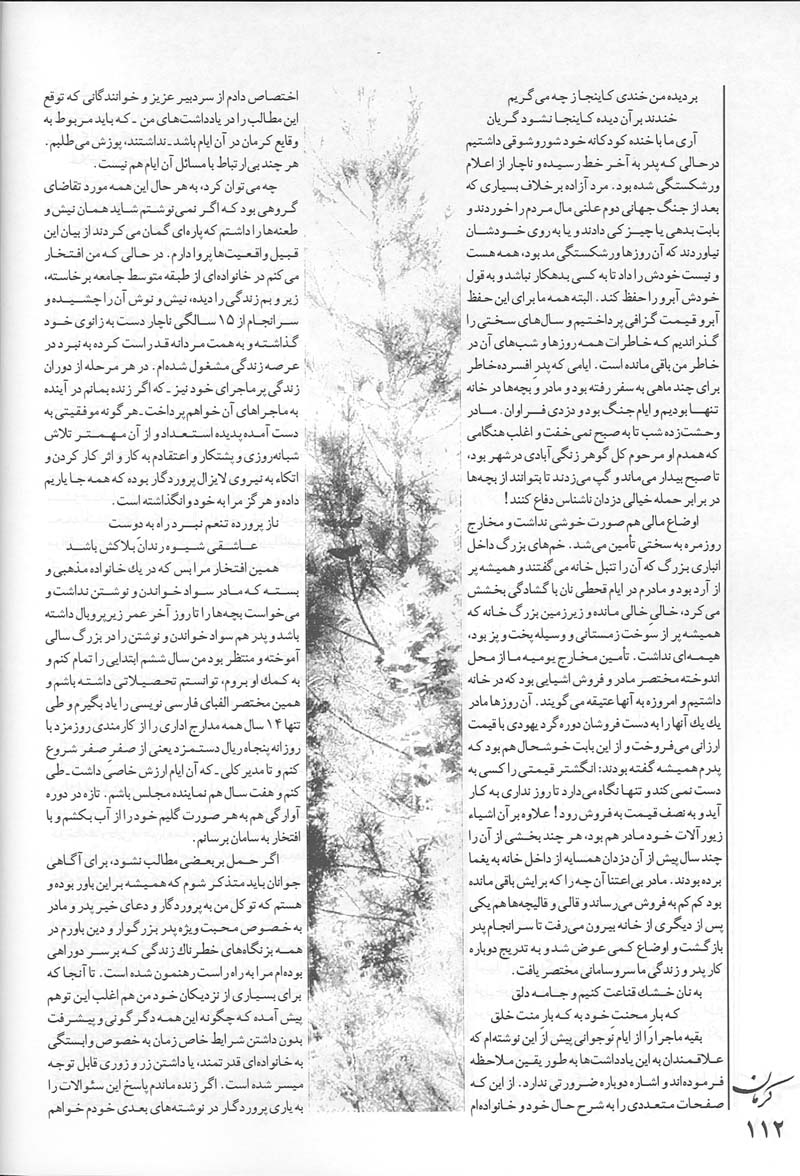 بر دیده من خندی کاینجا ز چه می‌گریم
خندند بر آن دیده کاینجا نشود گریان
آری ما با خنده کودکانه خود شور و شوقی داشتیم
در حالی که پدر به آخر خط رسیده و ناچار از اعلام
ورشکستگی شده بود. مرد آزاده بر خلاف بسیاری که
بعد از جنگ جهانی دوم علنی مال مردم را خوردند و
بابت بدهی یا چیزکی دادند و یا به روی خودشان
نیاوردند که آن روزها ورشکستگی مد بود، همه هست
و نیست خودش را داد تا به کسی بدهکار نباشد و به قول
خودش آبرو را حفظ کند. البته همه ما برای این حفظ
آبرو قیمت گزافی پرداختیم و سال‌های سختی را
گذراندیم که خاطرات همه روزها و شب‌های آن در
خاطر من باقی مانده است. ایامی که پدرِ افسرده خاطر
برای چند ماهی به سفر رفته بود و مادر و بچه‌ها در خانه
تنها بودیم و ایام جنگ بود و دزدی فراوان. مادر
وحشت‌زده شب تا به صبح نمی‌خفت و اغلب هنگامی
که همدم او مرحوم کل گوهر زنگی‌آبادی در شهر بود،
تا صبح بیدار می‌ماند و گپ می‌زدند تا بتوانند از بچه‌ها
در برابر حمله خیالی دزدان ناشناس دفاع کنند!
اوضاع مالی هم صورت خوشی نداشت و مخارج
روزمره به سختی تأمین می‌شد. خم‌های بزرگ داخل
انباری بزرگ که آن را تنبل خانه می‌گفتند و همیشه پر
از آرد بود و مادرم در ایام قحطی نان با گشادگی بخشش
می‌کرد، خالیِ خالی مانده و زیرزمین بزرگ خانه که
همیشه پر از سوخت زمستانی و وسیله پخت و پز بود،
هیمه‌ای نداشت. تأمین مخارج یومیه ما از محل
اندوخته مختصر مادر و فروش اشیایی بود که در خانه
داشتیم و امروزه به آنها عتیقه می‌گویند. آن روزها مادر
یك یك آنها را به دست فروشان دوره گرد یهودی با قیمت
ارزانی می‌فروخت و از این بابت خوشحال هم بود که
پدرم همیشه گفته بودند: انگشتر قیمتی را کسی به
دست نمی‌کند و تنها نگاه می‌دارد تا روز نداری به کار
آید و به نصف قیمت به فروش رود! علاوه بر آن اشیاء
زیورآلات خود مادر هم بود، هر چند بخشی از آن را
چند سال پیش از آن دزدان همسایه از داخل خانه به یغما
برده بودند. مادر بی‌اعتنا آن چه را که برایش باقی مانده
بود کم کم به فروش می‌رساند و قالی و قالیچه‌ها هم یکی
پس از دیگری از خانه بیرون می‌رفت تا سرانجام پدر
بازگشت و اوضاع کمی عوض شد و به تدریج دوباره
کار پدر و زندگی ما سر و سامانی مختصر یافت.
به نان خشك قناعت کنیم و جامه دلق
که بار محنت خود به که بار منت خلق
بقیه ماجرا را از ایام نوجوانی پیش از این نوشته‌ام که
علاقمندان به این یادداشت‌ها به طور یقین ملاحظه
فرموده‌اند و اشاره دوباره ضرورتی ندارد. از این که
صفحات متعددی را به شرح حال خود و خانواده‌ام
اختصاص دادم از سردبیر عزیز و خوانندگانی که توقع
این مطالب را در یادداشت‌های من ـ که باید مربوط به
وقایع کرمان در آن ایام باشد ـ نداشتند، پوزش می‌طلبم.
هر چند بی‌ارتباط با مسائل آن ایام هم نیست.
چه می‌توان کرد، به هر حال این همه مورد تقاضای
گروهی بود که اگر نمی‌نوشتم شاید همان نیش و
طعنه‌ها را داشتم که پاره‌ای گمان می‌کردند از بیان این
قبیل واقعیت‌ها پروا دارم. در حالی که من افتخار
می‌کنم در خانواده‌ای از طبقه متوسط جامعه برخاسته،
زیر و بم زندگی را دیده، نیش و نوش آن را چشیده و
سرانجام از ۱۵ سالگی ناچار دست به زانوی خود
گذاشته و به همت مردانه قد راست کرده به نبرد در
عرصه زندگی مشغول شده‌ام. در هر مرحله از دوران
زندگی پر ماجرای خود نیز ـ که اگر زنده بمانم در آینده
به ماجراهای آن خواهم پرداخت ـ هر گونه موفقیتی به
دست آمده پدیده استعداد و از آن مهمتر تلاش
شبانه‌روزی و پشتکار و اعتقادم به کار و اثر کار کردن و
اتکاء به نیروی لایزال پروردگار بوده که همه جا یاریم
داده و هرگز مرا به خود وانگذاشته است.
ناز پرورده تنعم نبرد راه به دوست
عاشقی شیوه رندان بلاکش باشد
همین افتخار مرا بس که در یك خانواده مذهبی و
بسته که مادر سواد خواندن و نوشتن نداشت و
می‌خواست بچه‌ها را تا روز آخر عمر زیر پر و بال داشته
باشد و پدر هم سواد خواندن و نوشتن را در بزرگ سالی
آموخته و منتظر بود من سال ششم ابتدایی را تمام کنم و
به کمك او بروم، توانستم تحصیلاتی داشته باشم و
همین مختصر الفبای فارسی نویسی را یاد بگیرم و طی
تنها ۱۴ سال همه مدارج اداری را از کارمندی روزمزد با
روزانه پنجاه ریال دستمزد یعنی از صفرِ صفر شروع
کنم و تا مدیر کلی ـ که آن ایام ارزش خاصی داشت ـ طی
کنم و هفت سال هم نماینده مجلس باشم. تازه در دوره
آوارگی هم به هر صورت گلیم خود را از آب بکشم و با
افتخار به سامان برسانم.
اگر حمل بر بعضی مطالب نشود، برای آگاهی
جوانان باید متذکر شوم که همیشه بر این باور بوده و
هستم که توکل من به پروردگار و دعای خیر پدر و مادر
به خصوص محبت ویژه پدر بزرگوار و دین باورم در
همه بزنگاه‌های خطرناك زندگی که بر سر دوراهی
بوده‌ام مرا به راه راست رهنمون شده است. تا آنجا که
برای بسیاری از نزدیکان خود من هم اغلب این توهم
پیش آمده که چگونه این همه دگرگونی و پیشرفت
بدون داشتن شرایط خاص زمان به خصوص وابستگی
به خانواده‌ای قدرتمند، یا داشتن زر و زوری قابل توجه
میسر شده است. اگر زنده ماندم پاسخ این سئوالات را
به یاری پروردگار در نوشته‌های بعدی خودم خواهم
کرمان
۱۱۲